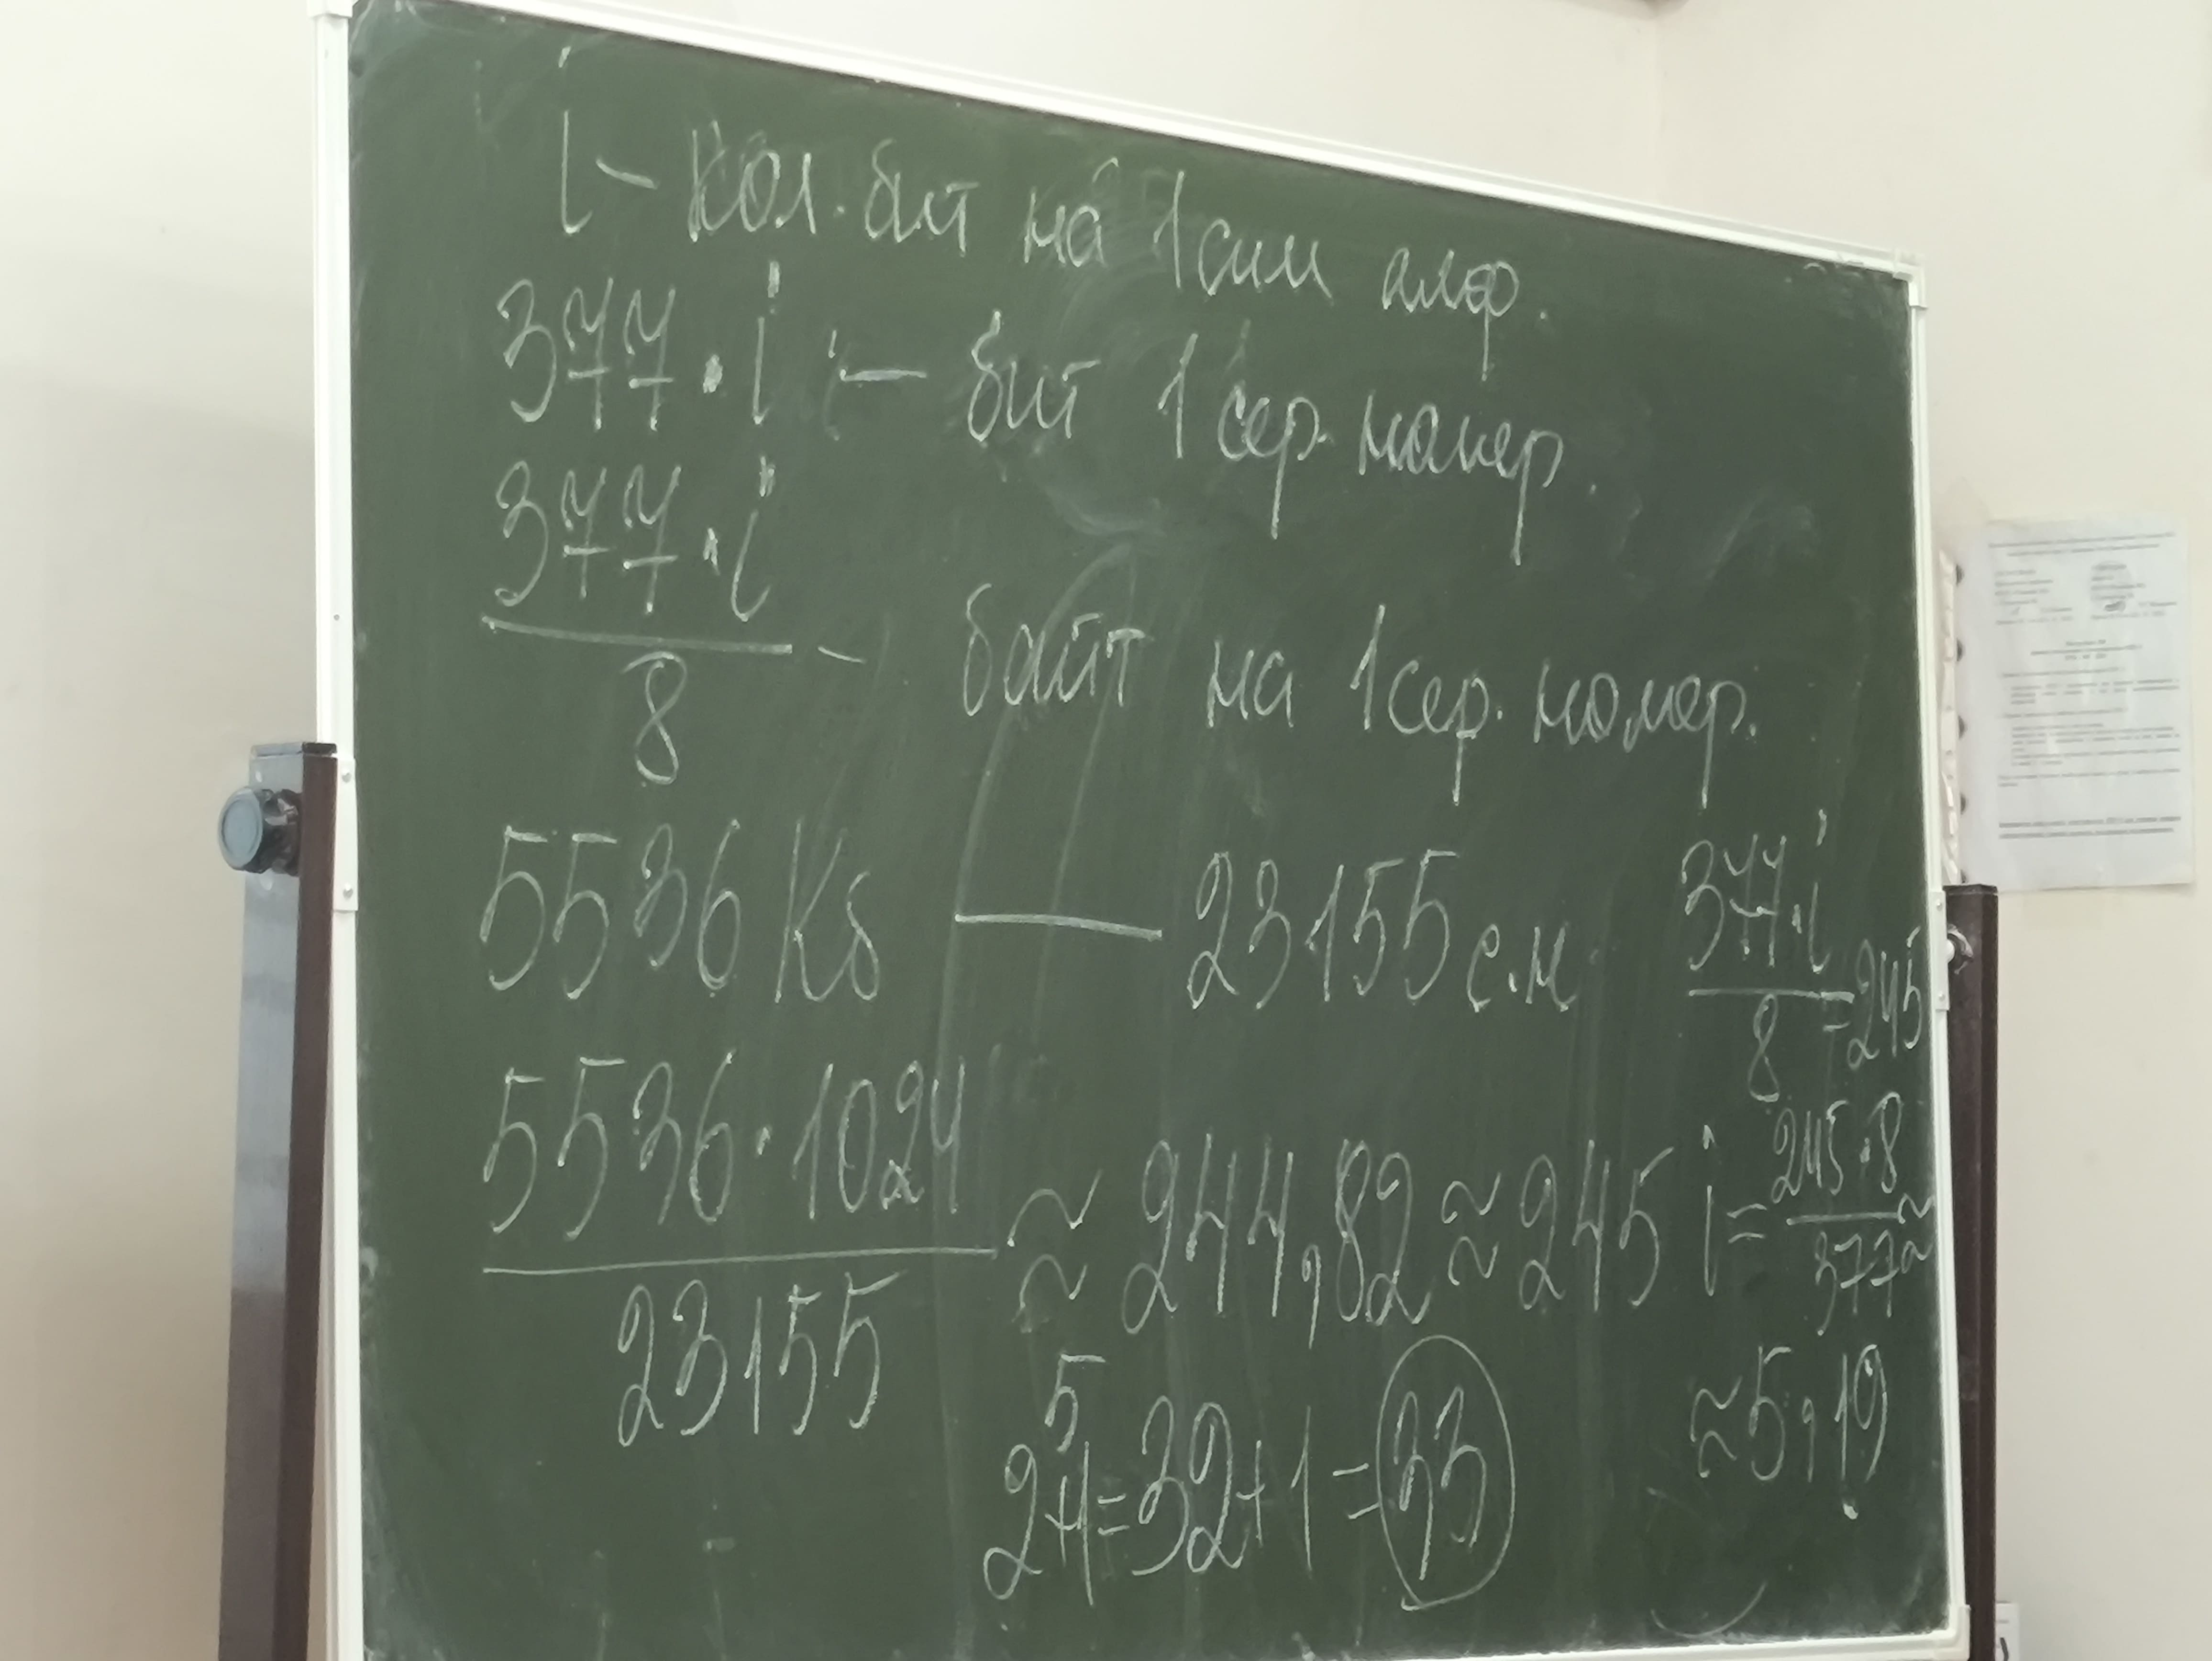 i – кол. бит на 1 сим алф.
377 · i – бит 1 сер. номер.
377 · i
8
– байт на 1 сер. номер.
5536 Кб — 23155 с.н.
5536 · 1024
23155
≈ 244,82 ≈ 245
2⁵+1=32+1=33
377·i
8
=245
i=
245·8
377
≈
≈5,19